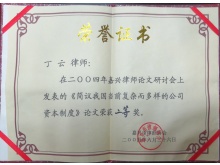 荣誉证书
丁云律师：
在二〇〇四年嘉兴律师论文研讨会上
发表的《简议我国当前复杂而多样的公司
资本制度》论文荣获二等奖。